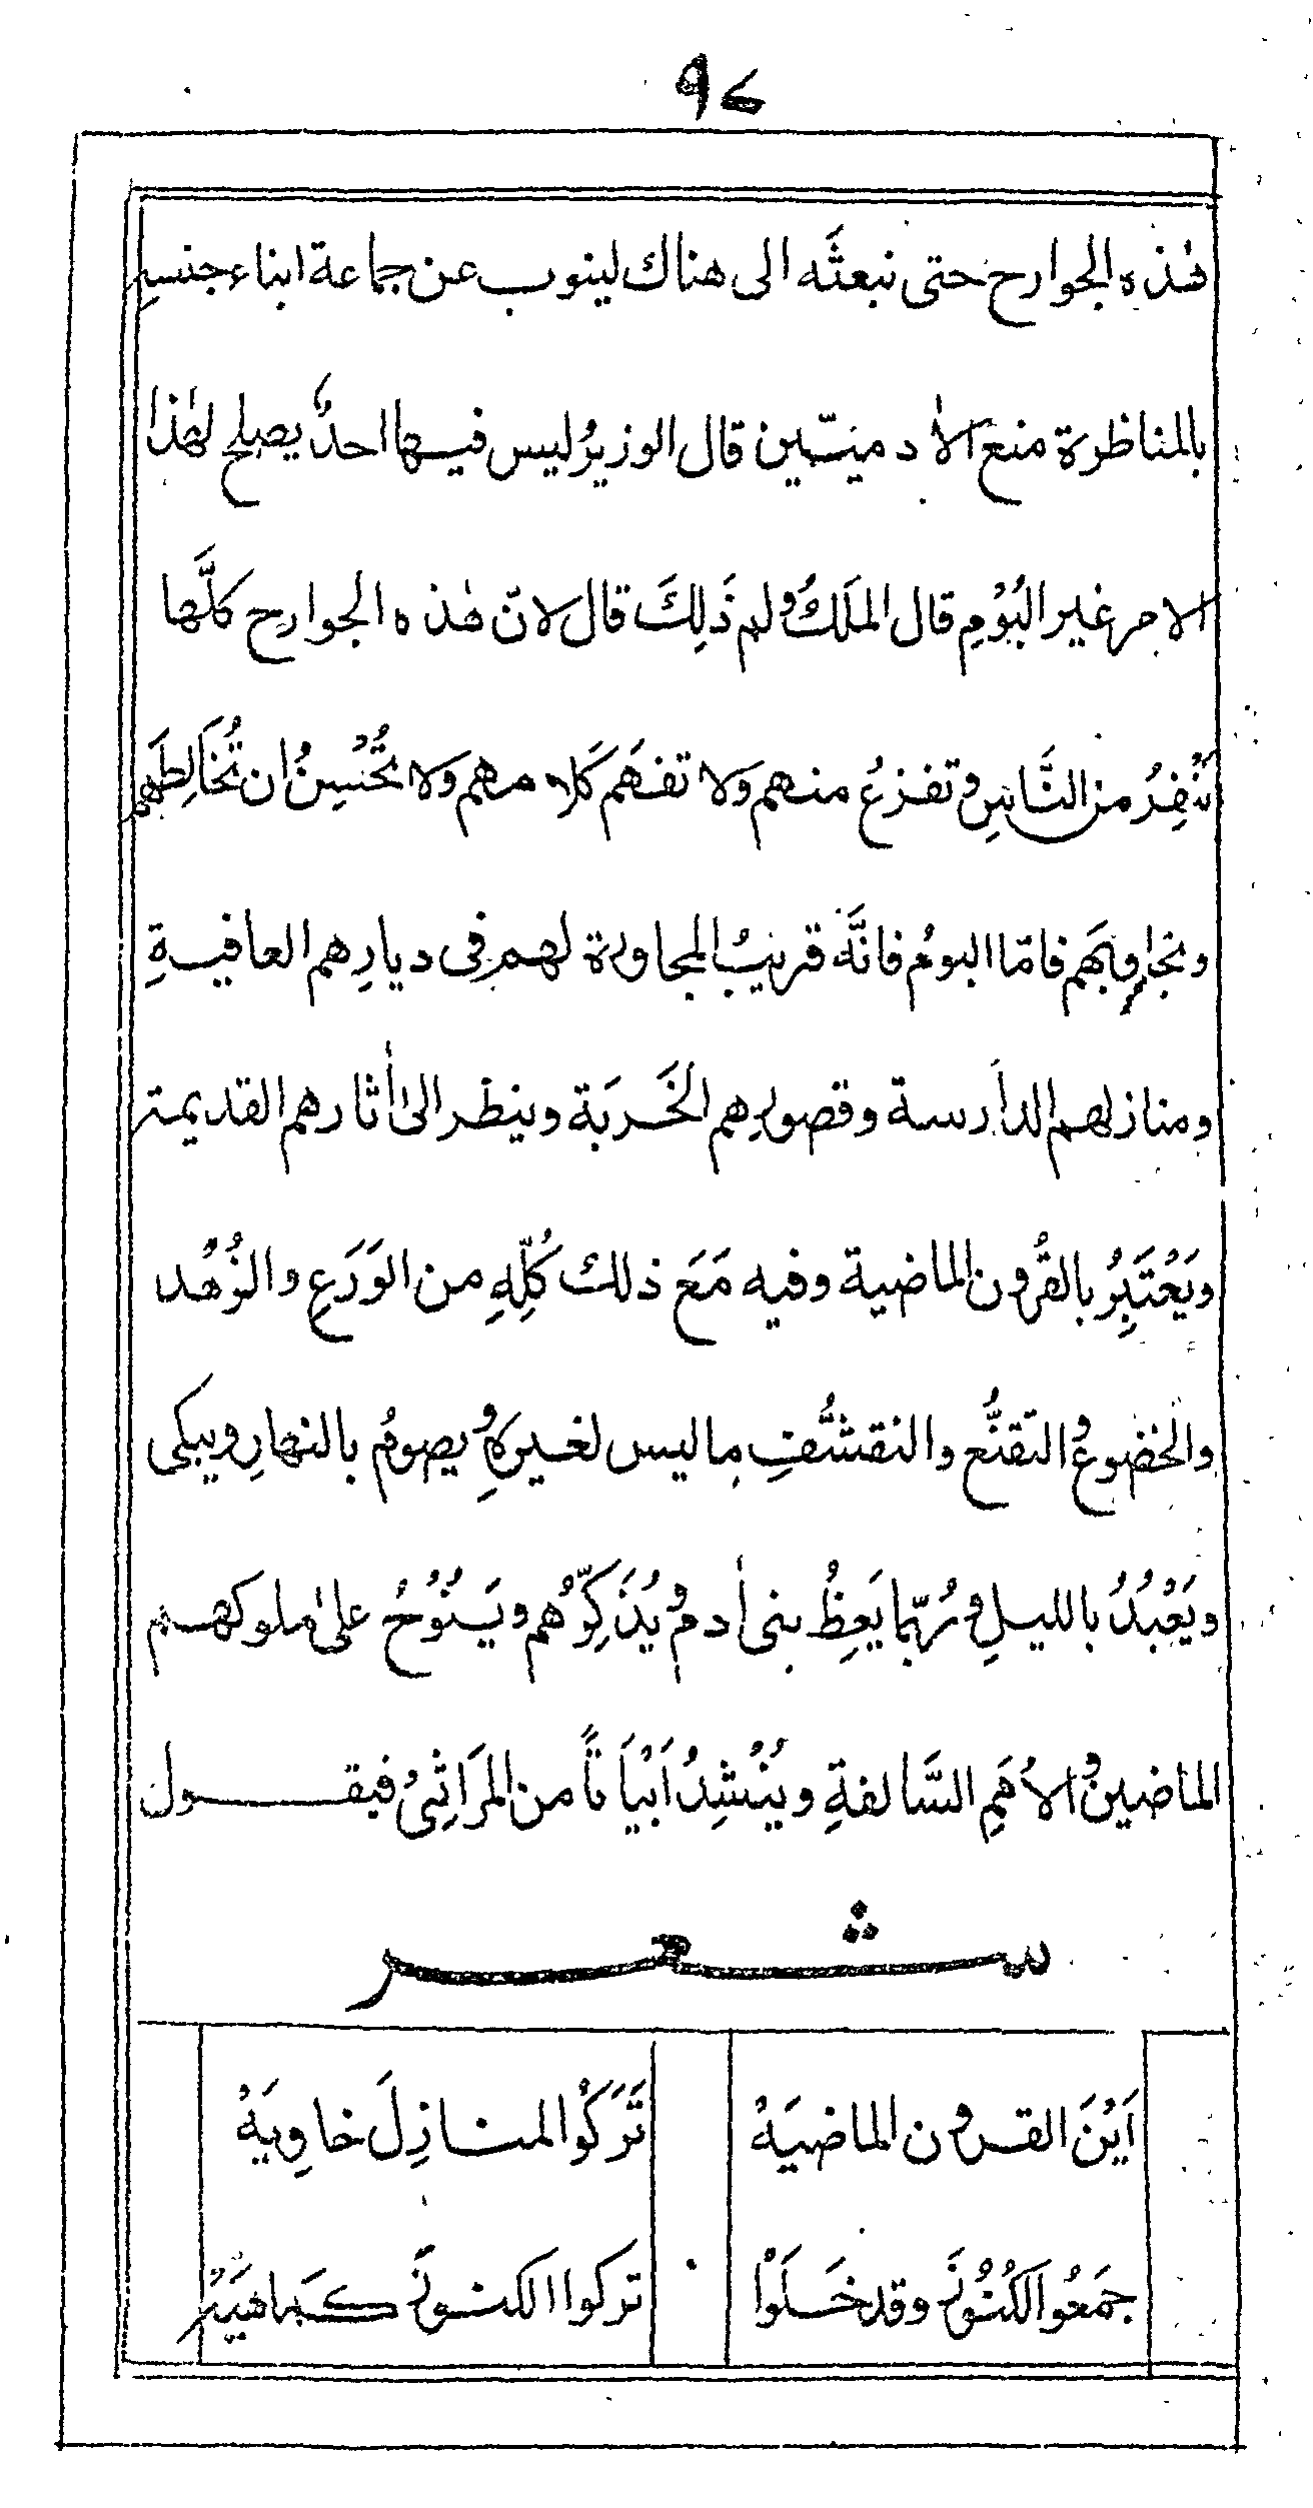 ٩٧
هٰذه الجوارح حتى نبعثَه الى هناك لينوب عن جماعة ابناء جنسهِ
بالمناظرة منع الاٰدميّين قال الوزيرُ ليس فيها احدٌ يصلح لهٰذا
الامر غير البُوْمِ قال المَلَكُ ولم ذَلِكَ قال لانّ هٰذه الجوارح كلَّها
تَنْفِرُ من النَّاسِ وتفزعُ منهم وَلا تفهَم كَلامهم وَلا تُحْسِنُ ان تُخَالِطَهم
وتجاوبَهم فامّا البومُ فانَّه قريبُ المجاورة لهم فى ديارِهم العافيةِ
ومنازلهم الدَارسة وقصورِهم الخَرِبَة وينظر الى اٰثارهم القديمة
ويَعْتَبِرُ بالقُرون الماضية وفيه مَعَ ذلك كُلِّهِ من الوَرَعِ والزُهْد
والخضوعُ والتقنُّع والتقشُّفِ ماليس لغيرهِ ويصومُ بالنهارِ ويبكى
ويَعْبُدُ بالليلِ ورُبّما يَعِظُ بنى اٰدم ويُذَكِّرُهم ويَنُوْحُ علىٰ ملوكهم
الماضينُ والأمَمِ السَّالفةِ ويُنْشِدُ اَبْيَاتاً من المَرَاثِىْ فيقول
شعر
اَيْنَ القرون الماضيَهْ تَرَكُوْا المنازِلَ خاوِيَهْ
جمَعُوا الكُنُوْزَ وقد خَلَوْا تركوا الكنوزَ كَمَاهِيَهْ